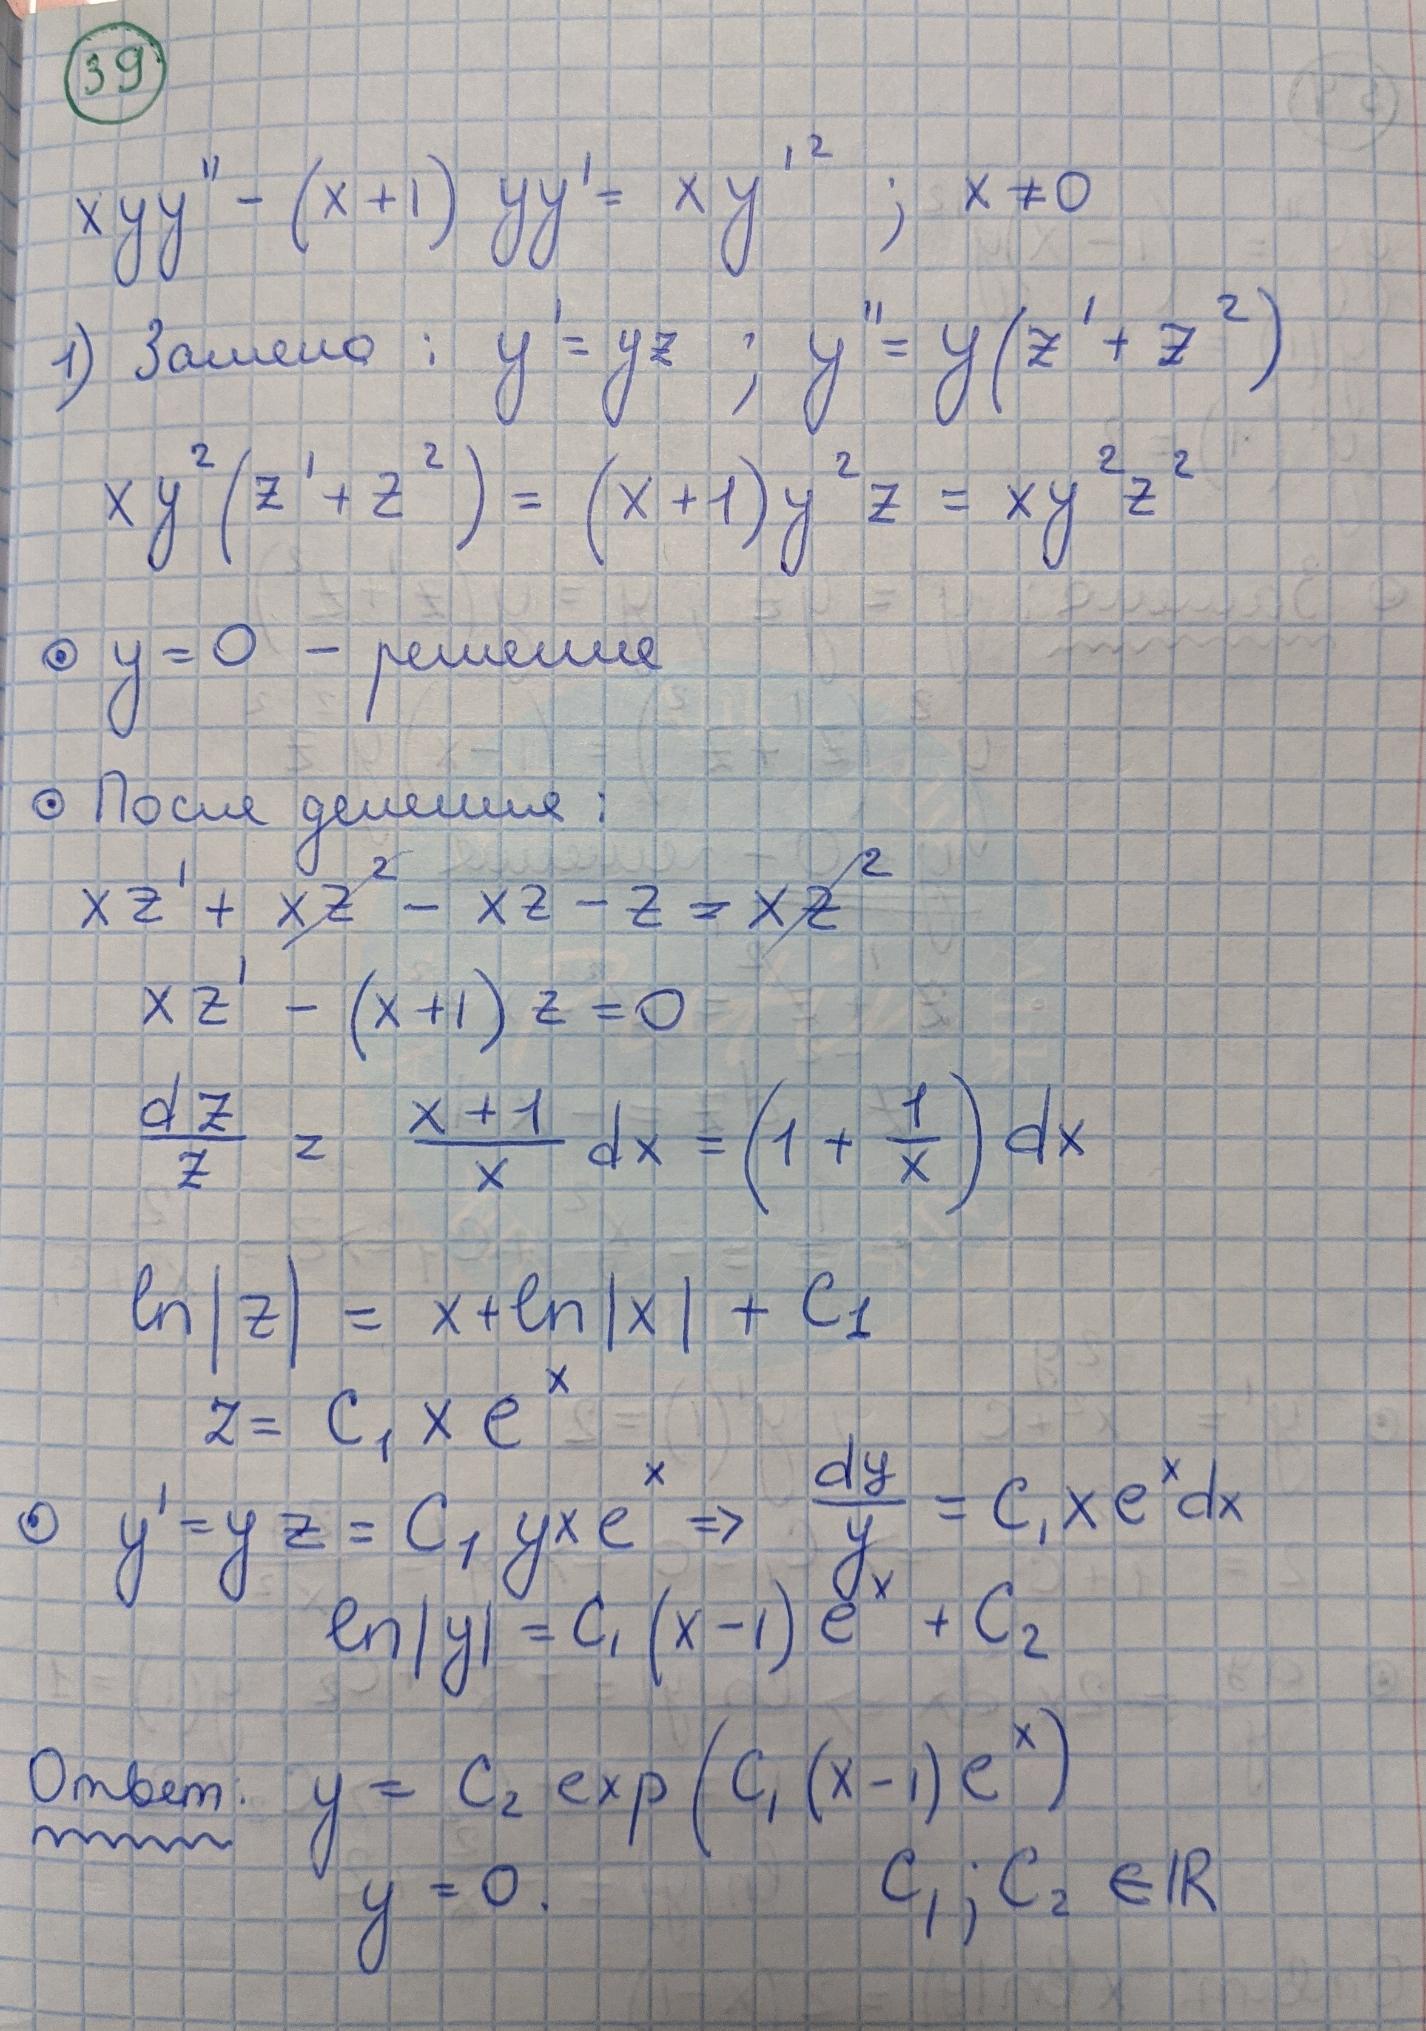 39
xyy" - (x+1) yy' = xy'² ; x ≠ 0
1) Замена : y' = yz ; y" = y(z' + z²)
xy²(z' + z²) = (x+1)y²z = xy²z²
⊙ y = 0 - решение
⊙ После деления :
xz' + xz² - xz - z = xz²
xz' - (x+1) z = 0
dz/z = (x+1)/x dx = (1 + 1/x) dx
ln|z| = x + ln|x| + C₁
z = C₁ x eˣ
⊙ y' = yz = C₁ yx eˣ ⇒ dy/y = C₁ x eˣ dx
ln|y| = C₁ (x-1) eˣ + C₂
Ответ: y = C₂ exp(C₁ (x-1) eˣ)
y = 0. C₁ ; C₂ ∈ ℝ